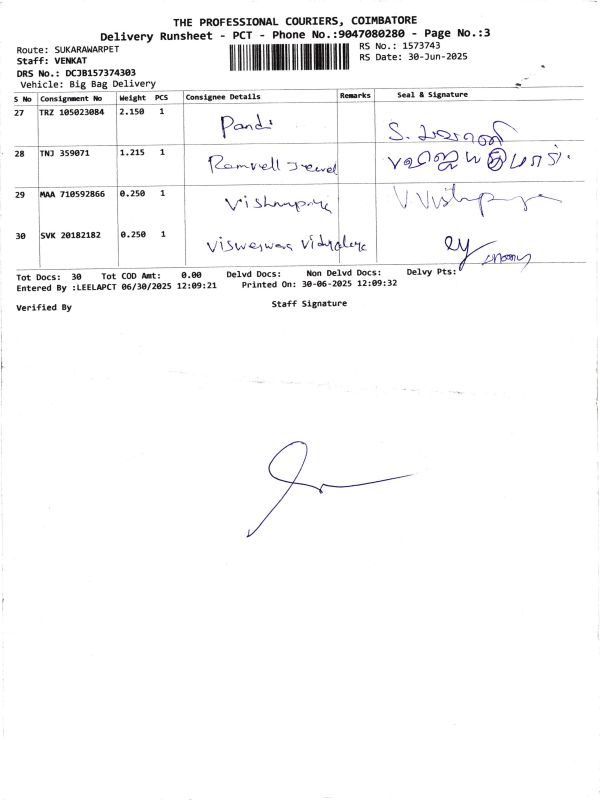 THE PROFESSIONAL COURIERS, COIMBATORE
Delivery Runsheet - PCT - Phone No.:9047080280 - Page No.:3
Route: SUKARAWARPET
RS No.: 1573743
Staff: VENKAT
RS Date: 30-Jun-2025
DRS No.: DCJB157374303
Vehicle: Big Bag Delivery
S No Consignment No Weight PCS Consignee Details Remarks Seal & Signature
27 TRZ 105023084 2.150 1 Pandi S.
28 TNJ 359071 1.215 1
29 MAA 710592866 0.250 1 Vishnupriya
30 SVK 20182182 0.250 1 Visweswara Vidyalaya
Tot Docs: 30 Tot COD Amt: 0.00 Delvd Docs: Non Delvd Docs: Delvy Pts:
Entered By :LEELAPCT 06/30/2025 12:09:21 Printed On: 30-06-2025 12:09:32
Verified By Staff Signature